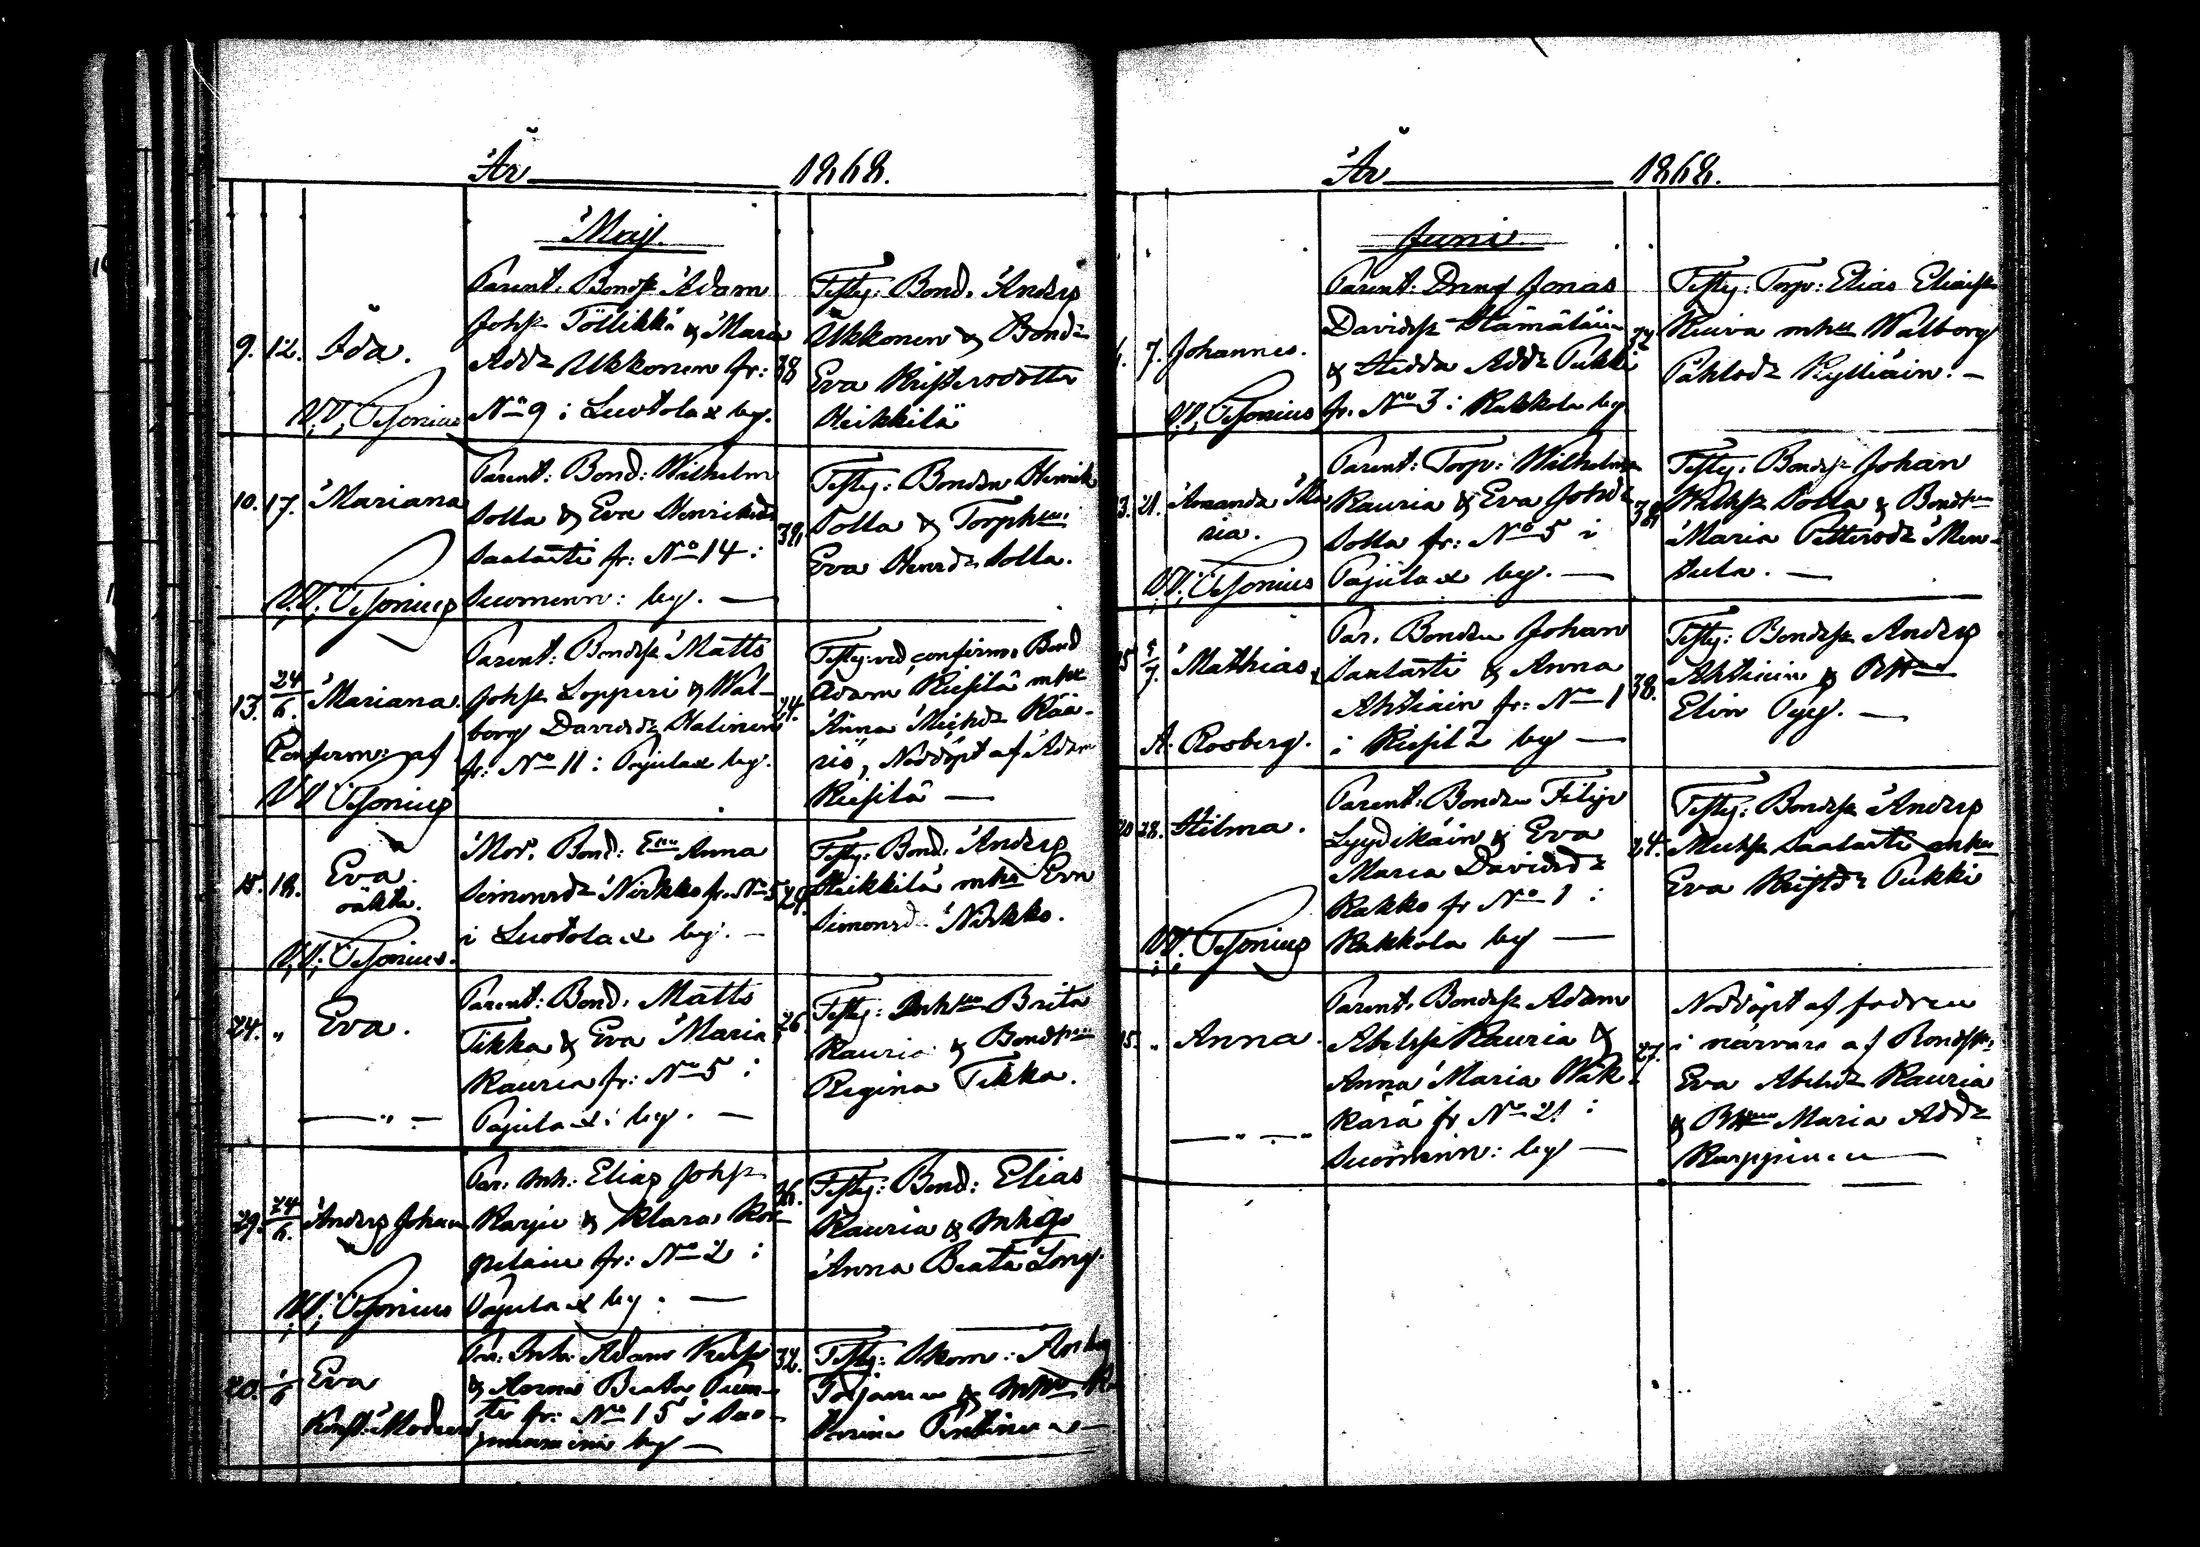 År 1868.
Maj.
9. 12. Ida.
V.V. Tesonius
Parent. Bonds. Adam
Johss. Töllikkä & Maria
Addr Ukkonen fr:
No 9 i Suotola x by.
38
Testy: Bond. Anders
Ukkonen & Bondr
Eva Kristersdotter
Heikkilä
10. 17. Mariana
V.V. Tesonius
Parent: Bond: Wilhelm
Solla & Eva Henriksdr
Saalasti fr: No 14 i
Suomenn: by. —
38
Testy: Bonden Henrik
Solla & Torphu
Eva Henrdr Solla.
13. 24/6. Mariana.
Conferm: af
V V Tesonius
Parent: Bonds. Matts
Johss. Lopperi & Wal-
borg Davidsdr Halinen
fr: No 11 i Pajula x by.
24.
Testy: vid confirm. Bond
Adam Riesilä mhu
Anna Michdr Kää-
riö, Nöddöpt af Adam
Riesilä —
15. 18. Eva.
oäkta.
V.V. Tesonius.
Mod. Bond: Enn Anna
Simonsdr Nirkko fr. No 5
i Suotola x by. —
29
Testy: Bond. Anders
Heikkilä mhu Eva
Simonsd. Nirkko.
24. " Eva.
— " —
Parent: Bond. Matts
Tikka & Eva Maria
Rauria fr: No 5 i
Pajula x i by. —
26
Testy: Inhsu Brita
Rauria & Bondhu
Regina Tikka.
29. 24/6. Anders Johan
V.V. Tesonius
Par. Inh: Elias Johss.
Karju & Klara Kor-
pelain fr: No 2 i
Pajula x by. —
36.
Testy: Bond: Elias
Rauria & Inhg
Anna Beata Tony.
20. 1/6 Eva
Parr. Inh. Adam
& Anna Beata
fr: No 15 i Suo-
by —
32.
Testy: Skom:
År 1868.
Juni.
7. Johannes.
V.V. Tesonius
Parent: Dreng Jonas
Davidss. Hämäläin
& Hedda Addr Pukki
fr. No 3 i Kakkola by
32
Testy: Torp: Elias Eliass.
Kuiva mhu Walborg
Påhlsdr Kylliäin. —
3. 21. Amanda Ma
ria.
V.V. Tesonius
Parent: Torp: Wilhelm
Rauria & Eva Johdr
Solla fr: No 5 i
Pajula x by. —
38
Testy: Bonds. Johan
Wilhss. Solla & Bondhu
Maria Pettersdr Men-
tula. —
15 5/7. Mathias.
A. Rosberg.
Par. Bonden Johan
Saalasti & Anna
Ahtiain fr: No 1
i Riesilä by —
38.
Testy: Bondss. Anders
Ahtiain &
Elin Pyy. —
20 28. Hilma.
V.V. Tesonius
Parent: Bonden Filip
Lyydikäin & Eva
Maria Davidsdr
Kakko fr No 1 i
Kakkola by —
24.
Testy: Bondss. Anders
Michss. Saalasti mhu
Eva Kristdr Pukki
15. " Anna.
— " — " —
Parent. Bondss. Adam
Abelss. Rauria &
Anna Maria Wak-
kärä fr No 21 i
Suomenn: by —
27.
Nöddöpt af fadren
i närvara af Bonds.
Eva Abelsdr Rauria
& Maria Addr
Karppinen —